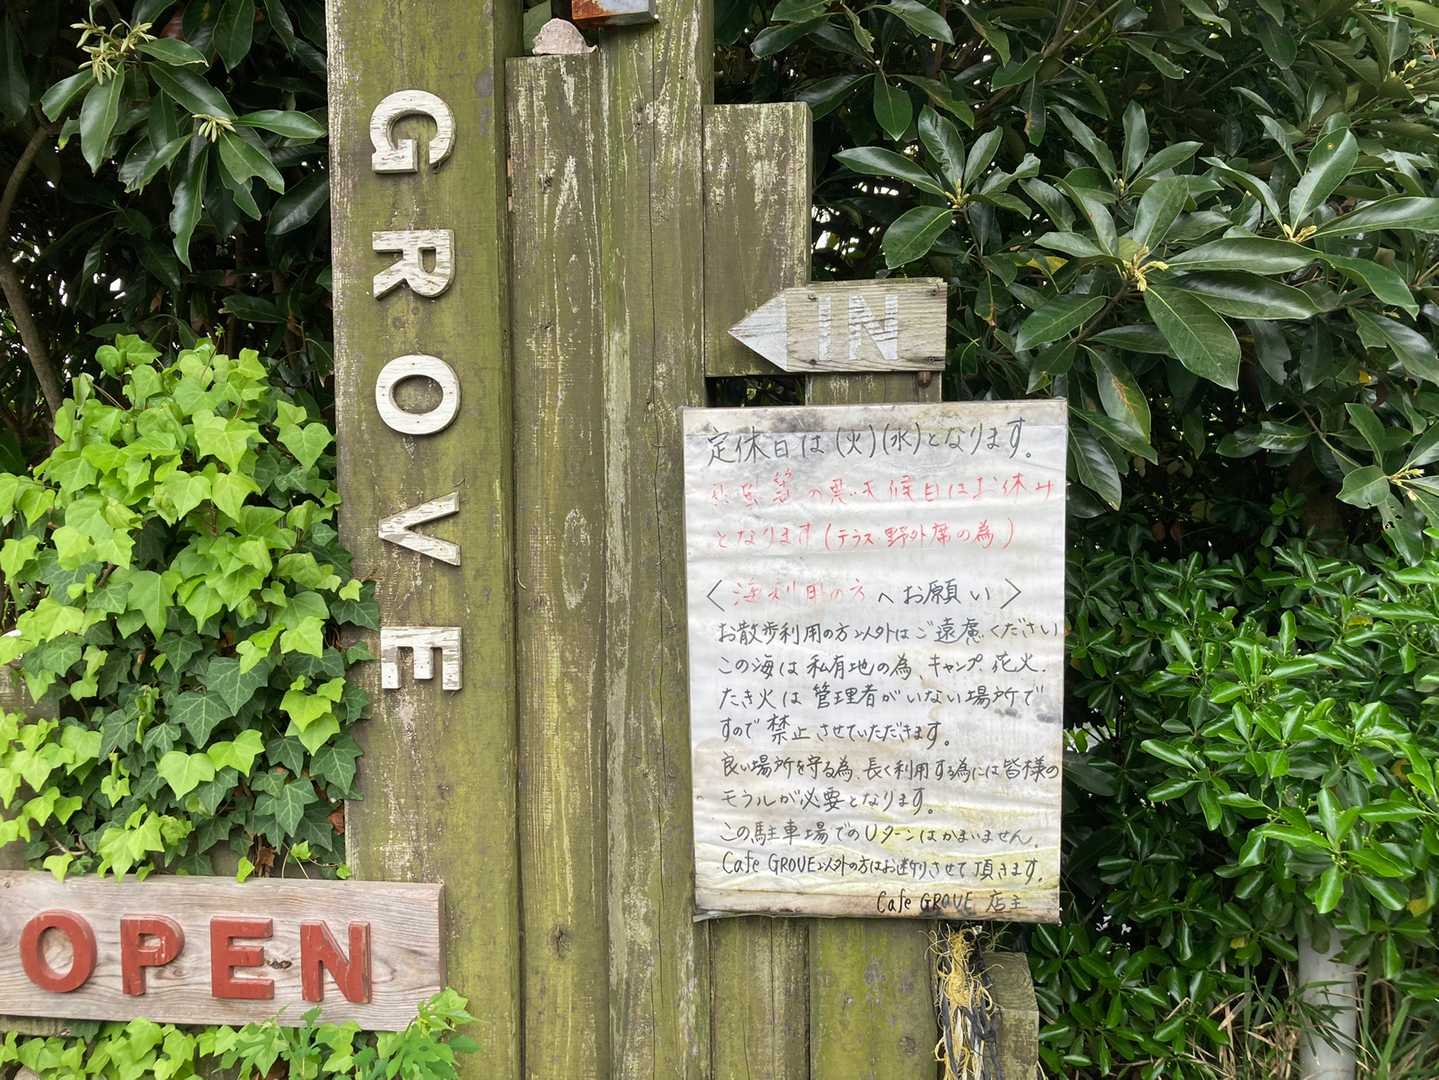 GROVE
IN
定休日は(火)(水)となります。
の悪い天候日はお休み
となります(テラス 野外席の為)
〈海利用の方へお願い〉
お散歩利用の方以外はご遠慮ください
この海は私有地の為、キャンプ、花火、
たき火は管理者がいない場所で
すので禁止させていただきます。
良い場所を守る為、長く利用する為には皆様の
モラルが必要となります。
この駐車場でのUターンはかまいません。
Cafe GROVE以外の方はお断りさせて頂きます。
Cafe GROVE 店主
OPEN